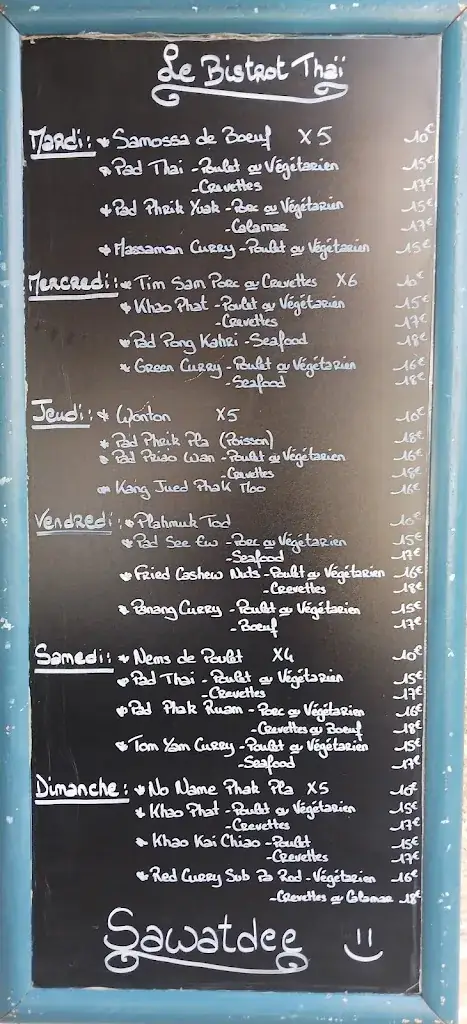 Le Bistrot Thaï
Mardi: * Samossa de Boeuf X5 10€
* Pad Thai - Poulet ou Végétarien 15€
- Crevettes 17€
* Pad Phrik Yuak - Porc ou Végétarien 15€
- Calamar 17€
* Massaman Curry - Poulet ou Végétarien 15€
Mercredi: * Tim Sam Porc ou Crevettes X6 10€
* Khao Phat - Poulet ou Végétarien 15€
- Crevettes 17€
* Pad Pong Kahri - Seafood 18€
* Green Curry - Poulet ou Végétarien 16€
- Seafood 18€
Jeudi: * Wonton X5 10€
* Pad Phrik Pla (Poisson) 18€
* Pad Priao Wan - Poulet ou Végétarien 16€
- Crevettes 18€
* Kang Jued Phak Moo 16€
Vendredi: * Plahmuk Tod 10€
* Pad See Ew - Porc ou Végétarien 15€
- Seafood 17€
* Fried Cashew Nuts - Poulet ou Végétarien 16€
- Crevettes 18€
* Panang Curry - Poulet ou Végétarien 15€
- Boeuf 17€
Samedi: * Nems de Poulet X4 10€
* Pad Thai - Poulet ou Végétarien 15€
- Crevettes 17€
* Pad Phak Ruam - Porc ou Végétarien 16€
- Crevettes ou Boeuf 18€
* Tom Yam Curry - Poulet ou Végétarien 15€
- Seafood 17€
Dimanche: * No Name Phak Pla X5 10€
* Khao Phat - Poulet ou Végétarien 15€
- Crevettes 17€
* Khao Kai Chiao - Poulet 15€
- Crevettes 17€
* Red Curry Sub Pa Rod - Végétarien 16€
- Crevettes ou Calamar 18€
Sawatdee